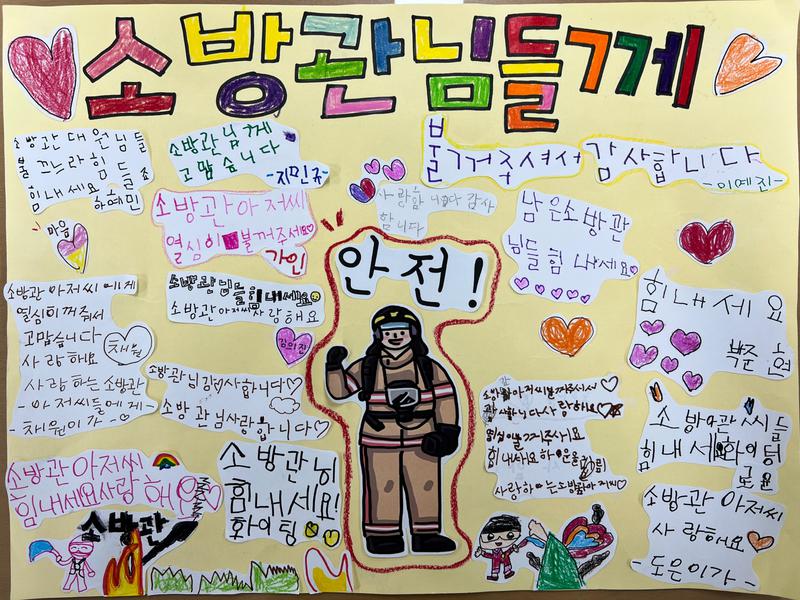 소방관님들께
소방관 대원님들
불 끄느라 힘들죠
힘내세요
하예민
소방관님께
고맙습니다
-지민규-
불꺼주셔서 감사합니다
-이예진-
마음
소방관아저씨
열심히 불꺼주세요
가인
사랑합니다 감사
합니다
남은소방관
님들힘내세요
안전!
소방관 아저씨에게
열심히꺼줘서
고맙습니다
사랑해요
채원
사랑하는소방관
-아저씨들에게-
-채원이가-
소방관님들힘내세요
소방관아저씨사랑해요
김의진
힘내세요
박준현
소방관님감사합니다
소방관님사랑합니다
사랑하는소방관아저씨
소방관 아저씨
힘내세요사랑해
소방관님
힘내세요!
화이팅
소방관
힘내세요화이팅
소방관 아저씨
사랑해요
-도은이가-